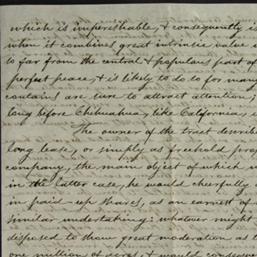 which is imperishable, & consequently is
when it combines great intrinsic value a
so far from the central & populous part of
perfect peace, & is likely to do so for many
contain) are sure to attract attention,
long before Chihuahua, like California,
The owner of the tract describ
long lease, or simply as freehold prop
company, the main object of which w
in the latter case, he would cheerfully a
in paid up shares, as an earnest of
similar undertaking: whatever might
disposed to show great moderation, as t
one millions of acres, & would consequen